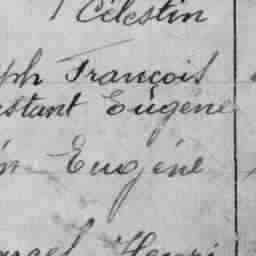 Célestin
ph François
stant Eugène
Eugéne
Henri